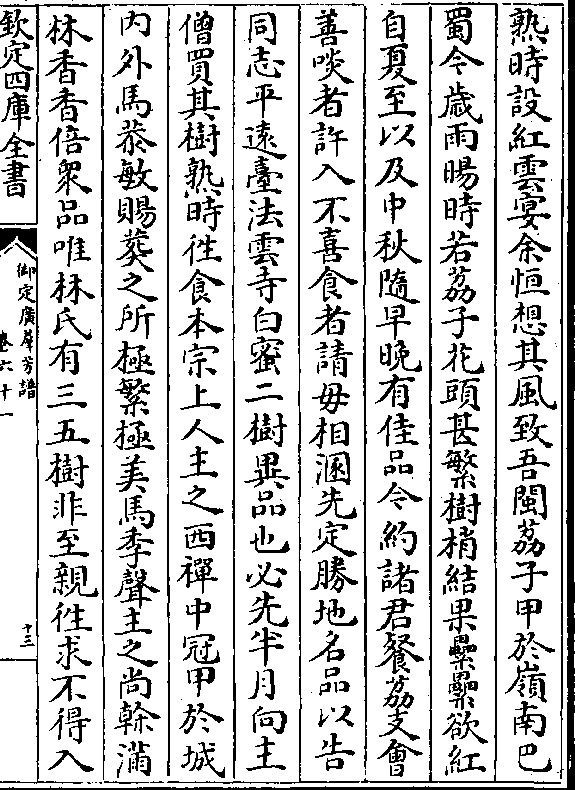 熟時設紅雲宴余恒想其風致吾閩荔子甲於嶺南巴
蜀今歳雨暘時若荔子花頭甚繁樹梢結果纍纍欲紅
自夏至以及中秋隨早晚有佳品今約諸君餐荔支會
善啖者許入不喜食者請毋相溷先定勝地名品以告
同志平逺臺法雲寺白蜜二樹異品也必先半月向主
僧買其樹熟時徃食本宗上人主之西禪中冠甲於城
内外馬恭敏賜葬之所極繁極美馬季聲主之尚榦滿
林香香倍衆品唯林氏有三五樹非至親徃求不得入
欽定四庫全書
御定廣羣芳譜
卷六十一
十三